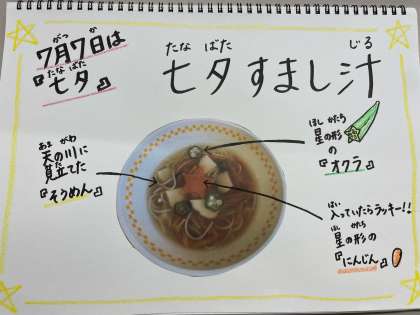 がつ か
7月7日は
たな ばた
『七夕』
たな ばた じる
七夕すまし汁
あま がわ
天の川に
み た
見立てた
『そうめん』
ほし かたち
星の形
の
『オクラ』
はい
入っていたらラッキー!!
ほし かたち
星の形の
『にんじん』